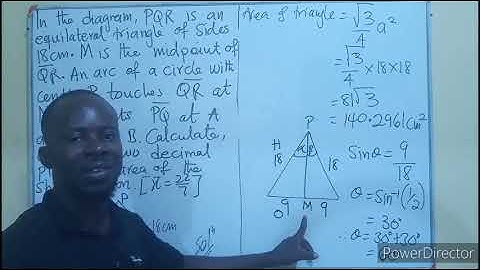 In the diagram, PQR is an
equilateral triangle of sides
18cm. M is the midpoint of
QR. An arc of a circle with
centre P touches QR at
PQ at A
B. Calculate,
two decimal
area of the
[π = 22/7]
P
18cm
Area of triangle = √3/4 a²
= √3/4 × 18 × 18
= 81√3
= 140.2961cm²
P
H
18
18
θ
9 M 9
O
Sinθ = 9/18
θ = Sin⁻¹(1/2)
= 30°
∴ θ = 30° + 30°
PowerDirector